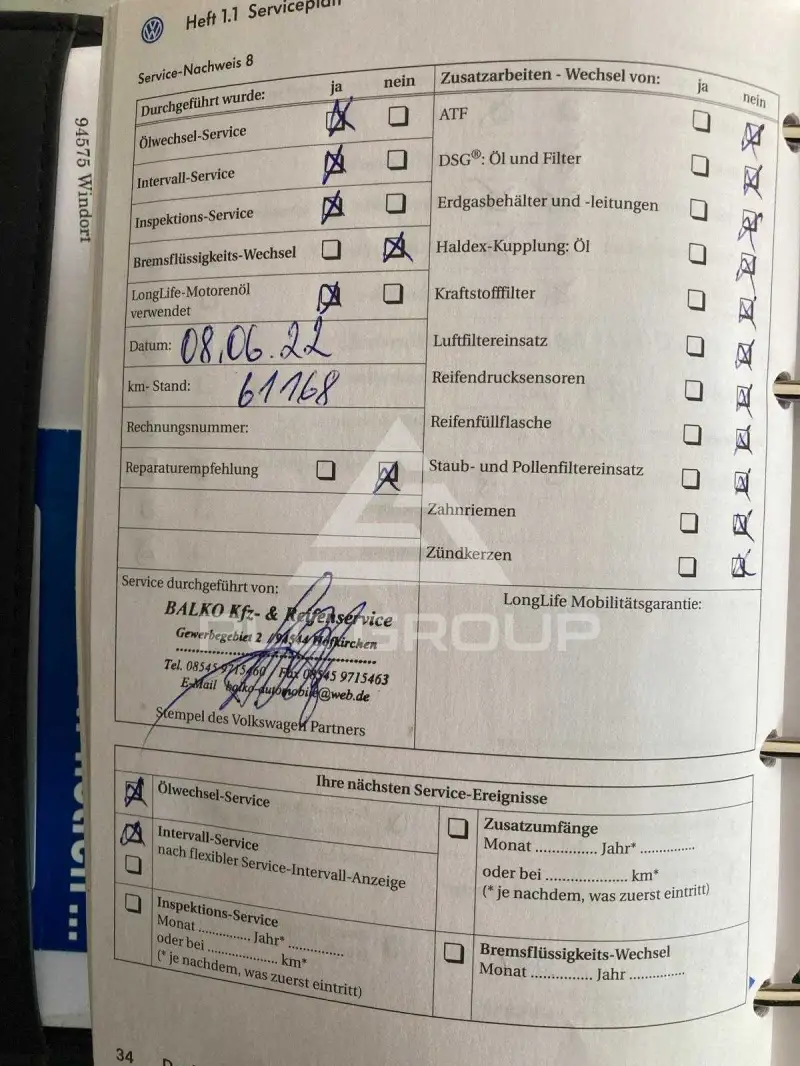 Heft 1.1 Serviceplan
Service-Nachweis 8
94575 Windorf
Durchgeführt wurde: ja nein
Ölwechsel-Service
Intervall-Service
Inspektions-Service
Bremsflüssigkeits-Wechsel
LongLife-Motorenöl
verwendet
Datum: 08.06.22
km- Stand: 61168
Rechnungsnummer:
Reparaturempfehlung
Service durchgeführt von:
BALKO Kfz- & Reifenservice
Gewerbegebiet 2 / 94544 Hofkirchen
Tel. 08545 9715460 / Fax 08545 9715463
E-Mail balko-automobile@web.de
Stempel des Volkswagen Partners
Zusatzarbeiten - Wechsel von: ja nein
ATF
DSG®: Öl und Filter
Erdgasbehälter und -leitungen
Haldex-Kupplung: Öl
Kraftstofffilter
Luftfiltereinsatz
Reifendrucksensoren
Reifenfüllflasche
Staub- und Pollenfiltereinsatz
Zahnriemen
Zündkerzen
LongLife Mobilitätsgarantie:
GROUP
Ihre nächsten Service-Ereignisse
Ölwechsel-Service
Intervall-Service
nach flexibler Service-Intervall-Anzeige
Inspektions-Service
Monat ............. Jahr* ..............
oder bei .................. km*
(* je nachdem, was zuerst eintritt)
Zusatzumfänge
Monat .............. Jahr* ..............
oder bei ..................... km*
(* je nachdem, was zuerst eintritt)
Bremsflüssigkeits-Wechsel
Monat .............. Jahr ..............
34